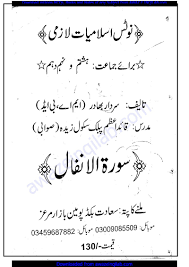 ﴿نوٹس اسلامیات لازمی﴾
﴿برائے جماعت: ہشتم و نہم دہم﴾
تالیف: سردار بہادر (ایم اے، بی ایڈ)
مدرس: قائد اعظم پبلک سکول زیدہ (صوابی)
﴿سورۃ الانفال﴾
ملنے کا پتہ: سعادت بکڈپو مین بازار مرغز
موبائل: 03009085509 موبائل: 03459687882
قیمت-/130